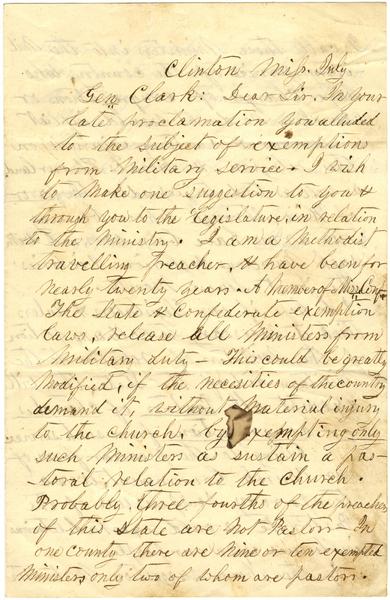 Clinton Miss. July
Gen Clark: Dear Sir. In your
late proclamation you alluded
to the subject of exemptions
from Military service. I wish
to make one suggestion to you &
through you to the Legislature, in relation
to the Ministry. I am a Methodist
travelling Preacher, & have been for
nearly twenty years. A number of
The State & Confederate exemption
laws, release all Ministers from
Military duty – This could be greatly
Modified, if the necessities of the country
demand it, without Material injury
to the church, by exempting only
such Ministers as sustain a pas-
toral relation to the Church.
Probably, three fourths of the preachers
of this State are not Pastors. In
one county there are nine or ten exempted
Ministers only two of whom are pastors.